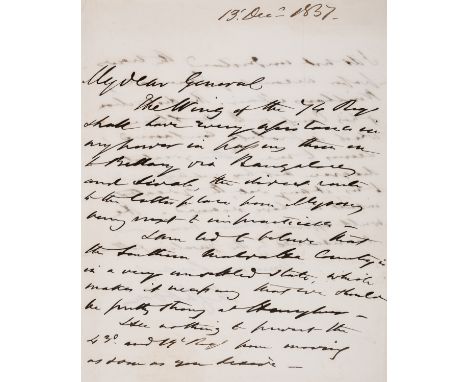 13 Decr 1857.
My dear General
The Wing of the 74 Regt
shall have every assistance in
my power in passing them on
to Bellary via Bangalore
and Sirah, the direct route
to the latter place from Mysore
being next to impracticable -
I am led to believe that
the Southern Mahratta Country is
in a very unsettled state, which
makes it necessary that we should
be pretty strong at
I see nothing to prevent the
43d and Regts from moving
as soon as you desire -